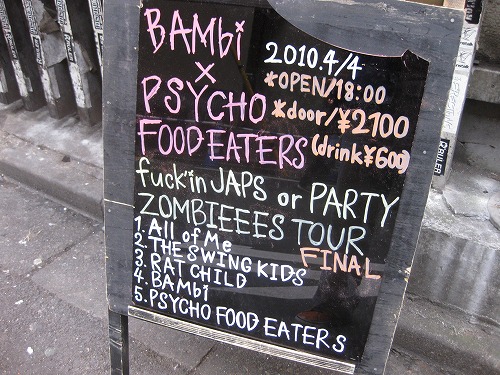 BAMbi
×
PSYCHO
FOOD EATERS
2010.4/4
*OPEN/18:00
*door/¥2100
(drink¥600)
fuck'in JAPS or PARTY
ZOMBIEEES TOUR
FINAL
1. All of Me
2. THE SWING KIDS
3. RAT CHILD
4. BAMbi
5. PSYCHO FOOD EATERS
RULER